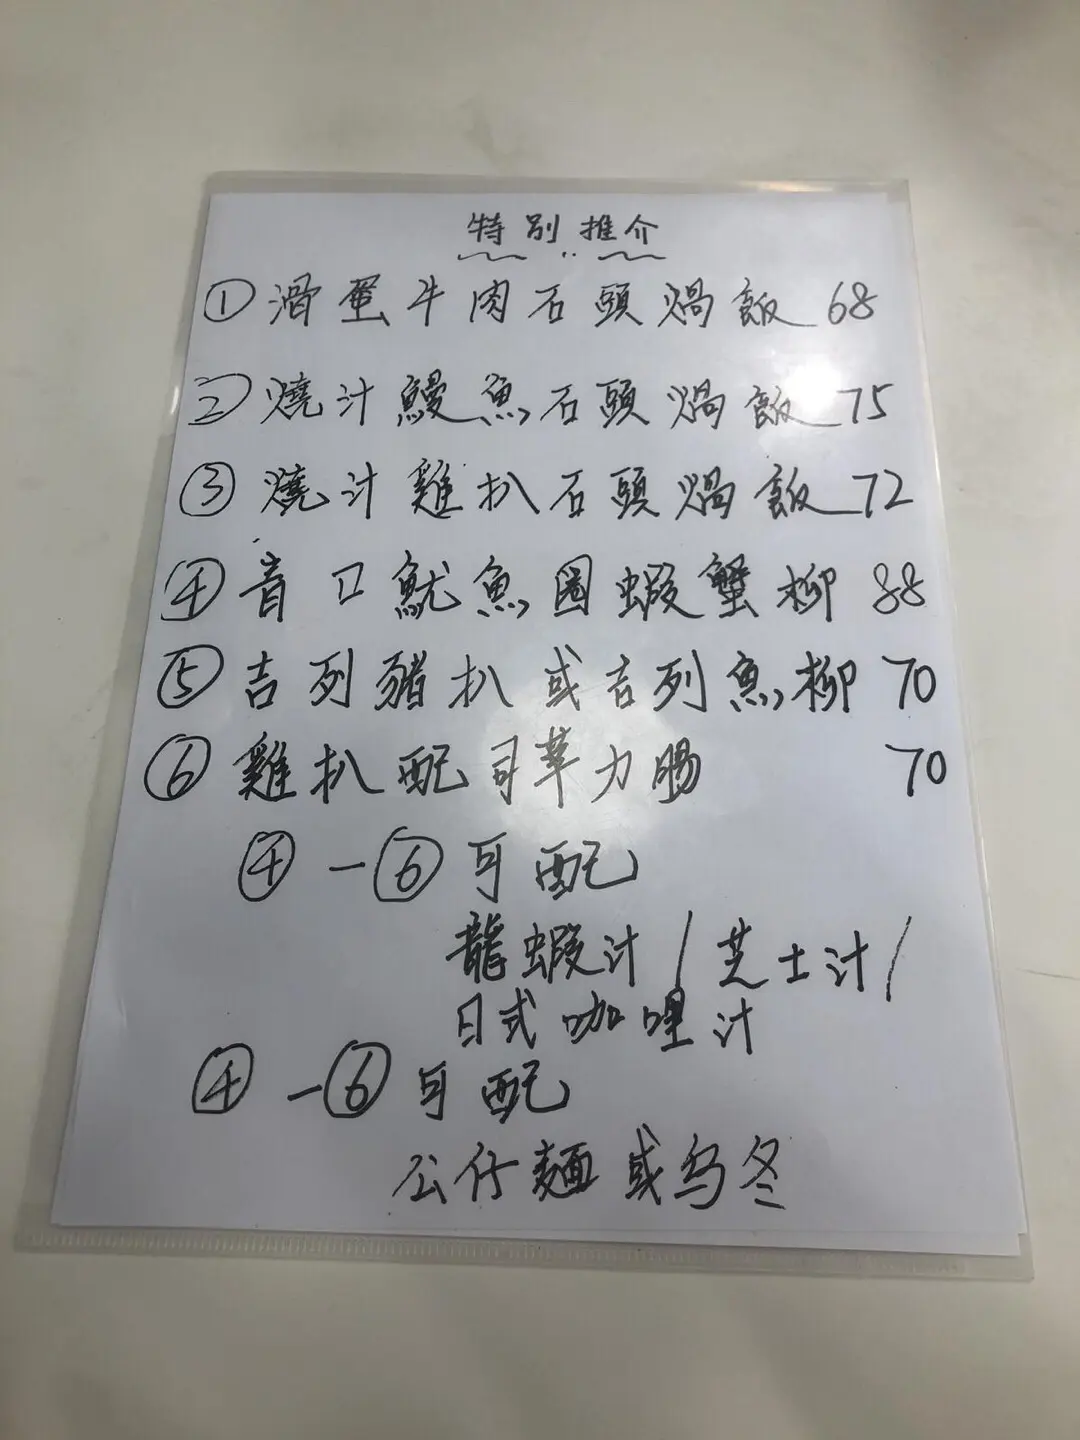 特別推介
① 滑蛋牛肉石頭煱飯 68
② 燒汁鰻魚石頭煱飯 75
③ 燒汁雞扒石頭煱飯 72
④ 青口魷魚圈蝦蟹柳 88
⑤ 吉列豬扒或吉列魚柳 70
⑥ 雞扒配司華力腸 70
④ - ⑥ 可配
龍蝦汁 / 芝士汁 /
日式咖哩汁
④ - ⑥ 可配
公仔麵或乌冬